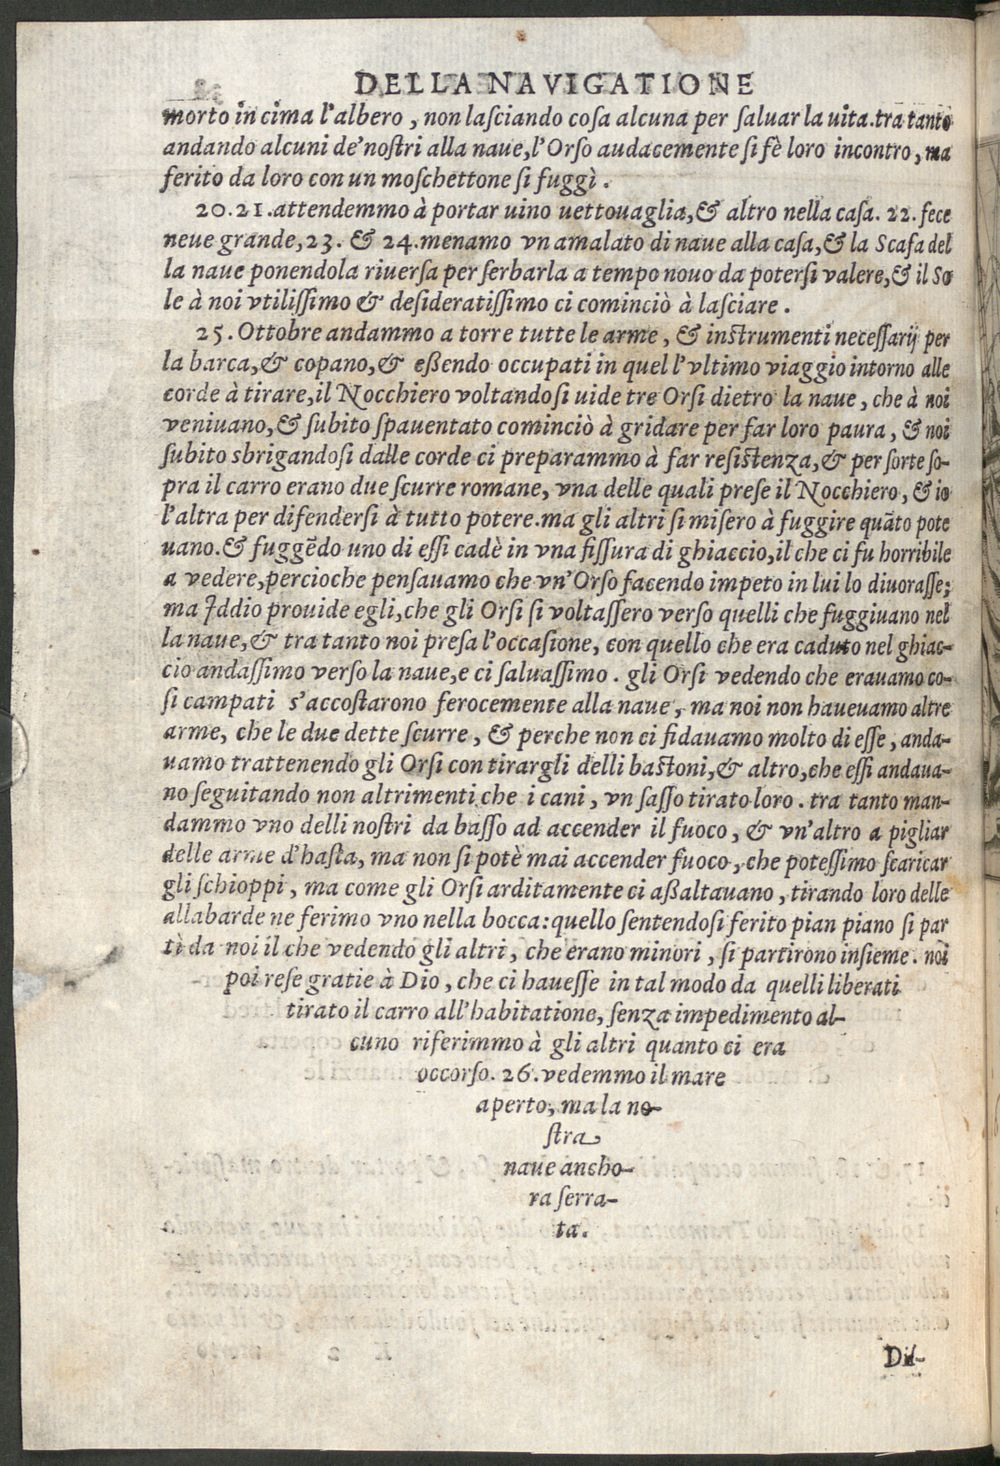 DELLA NAVIGATIONE
morto in cima l'albero, non laſciando coſa alcuna per ſaluar la uita. tra tanto
andando alcuni de' noſtri alla naue, l'Orſo audacemente ſi fè loro incontro, ma
ferito da loro con un moſchettone ſi fuggì.
20. 21. attendemmo à portar uino uettouaglia, & altro nella caſa. 22. fece
neue grande, 23. & 24. menamo vn amalato di naue alla caſa, & la Scafa del
la naue ponendola riuerſa per ſerbarla a tempo nouo da poterſi valere, & il So
le à noi vtiliſſimo & deſideratiſſimo ci cominciò à laſciare.
25. Ottobre andammo a torre tutte le arme, & inſtrumenti neceſſarij per
la barca, & copano, & eßendo occupati in quel l'vltimo viaggio intorno alle
corde à tirare, il Nocchiero voltandoſi uide tre Orſi dietro la naue, che à noi
veniuano, & ſubito ſpauentato cominciò à gridare per far loro paura, & noi
ſubito sbrigandoſi dalle corde ci preparammo à far reſiſtenza, & per ſorte ſo-
pra il carro erano due ſcurre romane, vna delle quali preſe il Nocchiero, & io
l'altra per difenderſi à tutto potere. ma gli altri ſi miſero à fuggire quãto pote
uano. & fuggẽdo uno di eſſi cadè in vna fiſſura di ghiaccio, il che ci fu horribile
a vedere, percioche penſauamo che vn'Orſo facendo impeto in lui lo diuoraſſe;
ma Iddio prouide egli, che gli Orſi ſi voltaſſero verſo quelli che fuggiuano nel
la naue, & tra tanto noi preſa l'occaſione, con quello che era caduto nel ghiac-
cio andaſſimo verſo la naue, e ci ſaluaſſimo. gli Orſi vedendo che erauamo co-
ſi campati s'accoſtarono ferocemente alla naue, ma noi non haueuamo altre
arme, che le due dette ſcurre, & perche non ci fidauamo molto di eſſe, anda-
uamo trattenendo gli Orſi con tirargli delli baſtoni, & altro, che eſſi andaua-
no ſeguitando non altrimenti che i cani, vn ſaſſo tirato loro. tra tanto man-
dammo vno delli noſtri da baſſo ad accender il fuoco, & vn'altro a pigliar
delle arme d'haſta, ma non ſi potè mai accender fuoco, che poteſſimo ſcaricar
gli ſchioppi, ma come gli Orſi arditamente ci aßaltauano, tirando loro delle
allabarde ne ferimo vno nella bocca: quello ſentendoſi ferito pian piano ſi par
tì da noi il che vedendo gli altri, che erano minori, ſi partirono inſieme. noi
poi reſe gratie à Dio, che ci haueſſe in tal modo da quelli liberati
tirato il carro all'habitatione, ſenza impedimento al-
cuno riferimmo à gli altri quanto ci era
occorſo. 26. vedemmo il mare
aperto, ma la no-
ſtra
naue ancho-
ra ſerra-
ta.
Dil-